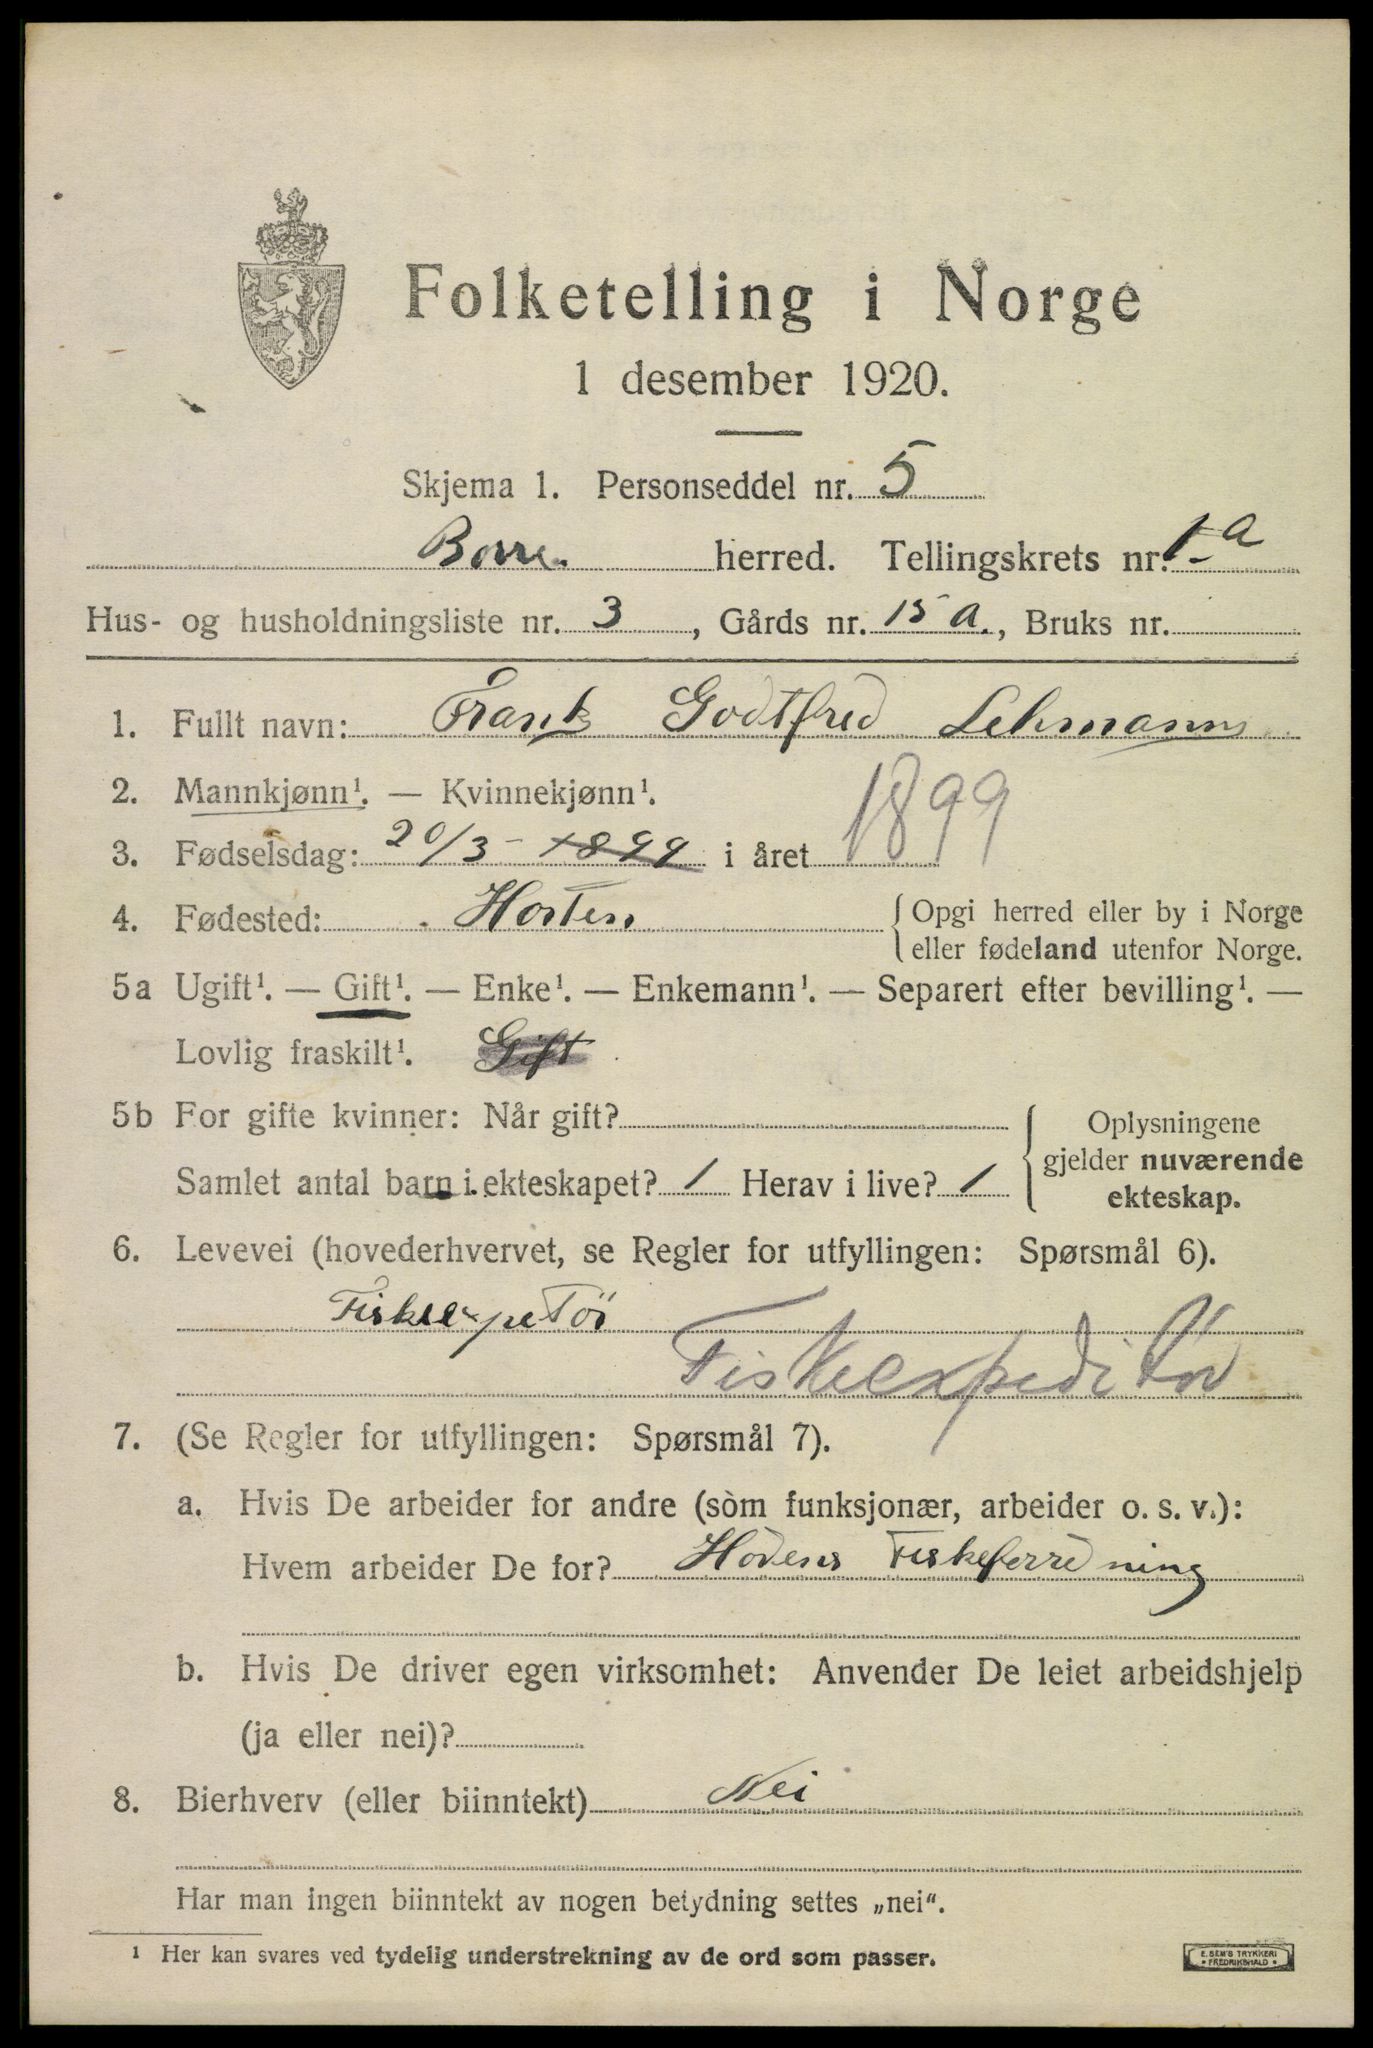 Folketelling i Norge
1 desember 1920.
Skjema 1. Personseddel nr. 5
Borre herred. Tellingskrets nr. 1 a
Hus- og husholdningsliste nr. 3, Gårds nr. 15 a., Bruks nr.
1. Fullt navn: Frank Godtfred Lehmann
2. Mannkjønn¹. — Kvinnekjønn¹.
3. Fødselsdag: 20/3 - 1899 i året 1899
4. Fødested: Horten { Opgi herred eller by i Norge
eller fødeland utenfor Norge.
5a Ugift¹. — Gift¹. — Enke¹. — Enkemann¹. — Separert efter bevilling¹. —
Lovlig fraskilt¹. Gift
5b For gifte kvinner: Når gift?
Samlet antal barn i ekteskapet? 1 Herav i live? 1
Oplysningene
gjelder nuværende
ekteskap.
6. Levevei (hovederhvervet, se Regler for utfyllingen: Spørsmål 6).
Fiskeexpetør
Fiskeexpeditør
7. (Se Regler for utfyllingen: Spørsmål 7).
a. Hvis De arbeider for andre (som funksjonær, arbeider o. s. v.):
Hvem arbeider De for? Fiskeforredning
b. Hvis De driver egen virksomhet: Anvender De leiet arbeidshjelp
(ja eller nei)?
8. Bierhverv (eller biinntekt) Nei
Har man ingen biinntekt av nogen betydning settes „nei“.
¹ Her kan svares ved tydelig understrekning av de ord som passer.
E. SEM'S TRYKKERI
FREDRIKSHALD